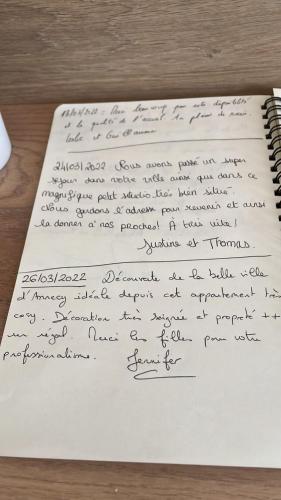 beaucoup pour votre disponibilité
et la qualité de l'accueil. Un plaisir de
et
24/03/2022 Nous avons passé un super
séjour dans votre ville ainsi que dans ce
magnifique petit studio très bien situé.
Nous gardons l'adresse pour revenir et ainsi
la donner à nos proches! A très vite!
Justine et Thomas.
26/03/2022 Découverte de la belle ville
d'Annecy idéale depuis cet appartement très
cosy. Décoration très soignée et propreté ++
un régal. Merci les filles pour votre
professionalisme. Jennifer